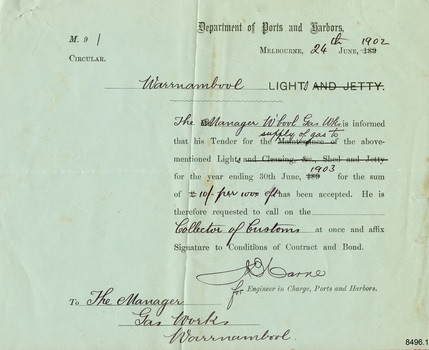 Department of Ports and Harbors,
M. 9 1
CIRCULAR.
MELBOURNE, 24th JUNE, 189 1902
Warrnambool LIGHTS AND JETTY.
The Manager W'bool Gas Wks is informed
that his Tender for the Maintenance supply of gas to of the above-
mentioned Lights and Cleaning, &c., Shed and Jetty
for the year ending 30th June, 189 1903 for the sum
of £ 10/- per 1000 cft has been accepted. He is
therefore requested to call on the
Collector of Customs at once and affix
Signature to Conditions of Contract and Bond.
for Engineer in Charge, Ports and Harbors.
To The Manager
Gas Works
Warrnambool
8496.1